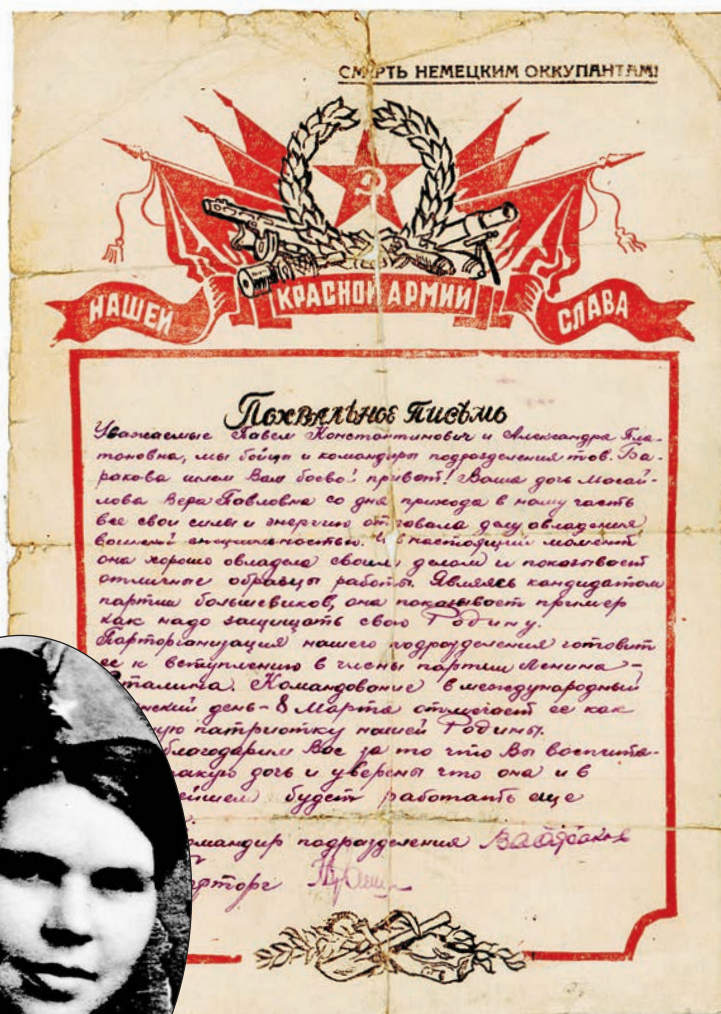 СМЕРТЬ НЕМЕЦКИМ ОККУПАНТАМ!
НАШЕЙ КРАСНОЙ АРМИИ СЛАВА
Похвальное письмо
Уважаемые Павел Константинович и Александра Пла-
тоновна, мы бойцы и командиры подразделения тов. Ба-
ракова шлем Вам боевой привет! Ваша дочь Мосай-
лова Вера Павловна со дня прихода в нашу часть
все свои силы и энергию отдавала делу овладения
военной специальностью. И в настоящий момент
она хорошо овладела своим делом и показывает
отличные образцы работы. Являясь кандидатом
партии большевиков, она показывает пример
как надо защищать свою Родину.
Парторганизация нашего подразделения готовит
ее к вступлению в члены партии Ленина-
Сталина. Командование в международный
нский день - 8 Марта отмечает ее как
ную патриотку нашей Родины.
благодарим Вас за то что Вы воспита-
такую дочь и уверены что она и в
ейшем будет работать еще
омандир подразделения
рторг